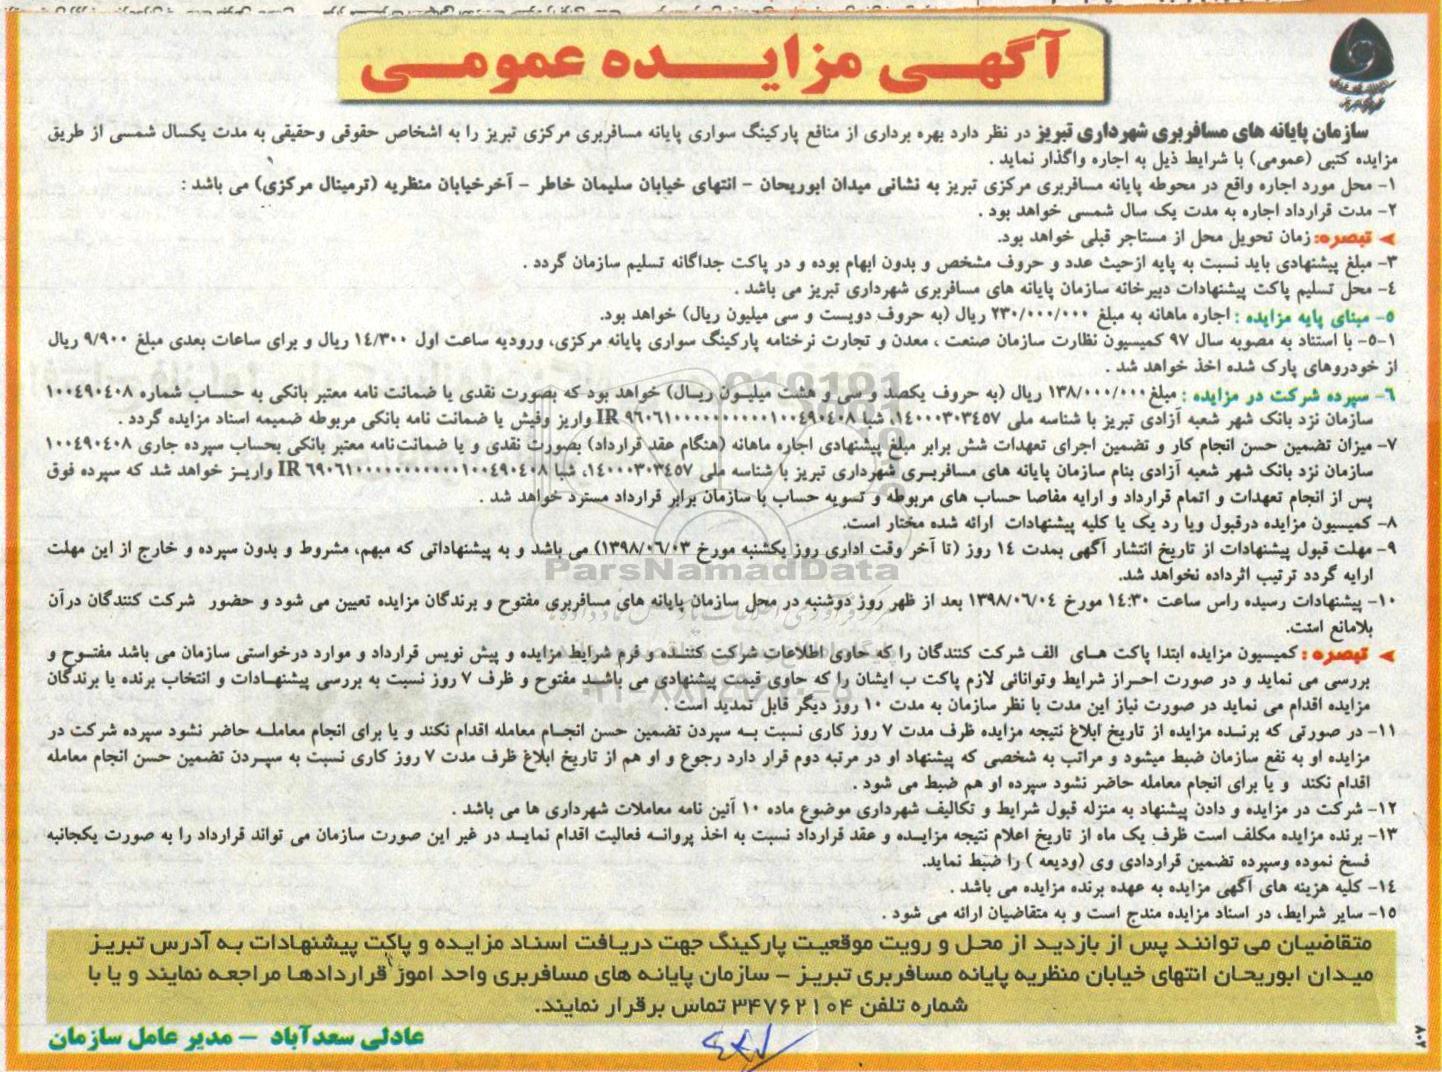 آگهی مزایده عمومی
سازمان پایانه های مسافربری شهرداری تبریز در نظر دارد بهره برداری از منافع پارکینگ سواری پایانه مسافربری مرکزی تبریز را به اشخاص حقوقی وحقیقی به مدت یکسال شمسی از طریق
مزایده کتبی (عمومی) با شرایط ذیل به اجاره واگذار نماید .
۱- محل مورد اجاره واقع در محوطه پایانه مسافربری مرکزی تبریز به نشانی میدان ابوریحان - انتهای خیابان سلیمان خاطر - آخرخیابان منظریه (ترمینال مرکزی) می باشد :
۲- مدت قرارداد اجاره به مدت یک سال شمسی خواهد بود .
تبصره: زمان تحویل محل از مستاجر قبلی خواهد بود.
۳- مبلغ پیشنهادی باید نسبت به پایه ازحیث عدد و حروف مشخص و بدون ابهام بوده و در پاکت جداگانه تسلیم سازمان گردد .
۴- محل تسلیم پاکت پیشنهادات دبیرخانه سازمان پایانه های مسافربری شهرداری تبریز می باشد .
۵- مبنای پایه مزایده : اجاره ماهانه به مبلغ ۲۳۰/۰۰۰/۰۰۰ ریال (به حروف دویست و سی میلیون ریال) خواهد بود.
۵-۱- با استناد به مصوبه سال ۹۷ کمیسیون نظارت سازمان صنعت ، معدن و تجارت نرخنامه پارکینگ سواری پایانه مرکزی، ورودیه ساعت اول ۱۴/۳۰۰ ریال و برای ساعات بعدی مبلغ ۹/۹۰۰ ریال
از خودروهای پارک شده اخذ خواهد شد .
۶- سپرده شرکت در مزایده : مبلغ ۱۳۸/۰۰۰/۰۰۰ ریال (به حروف یکصد و سی و هشت میلیون ریال) خواهد بود که بصورت نقدی یا ضمانت نامه معتبر بانکی به حساب شماره ۱۰۰۴۹۰۴۰۸
سازمان نزد بانک شهر شعبه آزادی تبریز با شناسه ملی ۱۴۰۰۰۳۰۳۴۵۷، شبا IR واریز وفیش یا ضمانت نامه بانکی مربوطه ضمیمه اسناد مزایده گردد .
۷- میزان تضمین حسن انجام کار و تضمین اجرای تعهدات شش برابر مبلغ پیشنهادی اجاره ماهانه (هنگام عقد قرارداد) بصورت نقدی و یا ضمانت‌نامه معتبر بانکی بحساب سپرده جاری ۱۰۰۴۹۰۴۰۸
سازمان نزد بانک شهر شعبه آزادی بنام سازمان پایانه های مسافربری شهرداری تبریز با شناسه ملی ۱۴۰۰۰۳۰۳۴۵۷، شبا IR واریز خواهد شد که سپرده فوق
پس از انجام تعهدات و اتمام قرارداد و ارایه مفاصا حساب های مربوطه و تسویه حساب با سازمان برابر قرارداد مسترد خواهد شد .
۸- کمیسیون مزایده درقبول ویا رد یک یا کلیه پیشنهادات ارائه شده مختار است.
۹- مهلت قبول پیشنهادات از تاریخ انتشار آگهی بمدت ۱۴ روز (تا آخر وقت اداری روز یکشنبه مورخ ۱۳۹۸/۰۶/۰۳) می باشد و به پیشنهاداتی که مبهم، مشروط و بدون سپرده و خارج از این مهلت
ارایه گردد ترتیب اثرداده نخواهد شد.
ParsNamadData
۱۰- پیشنهادات رسیده راس ساعت ۱۴:۳۰ مورخ ۱۳۹۸/۰۶/۰۴ بعد از ظهر روز دوشنبه در محل سازمان پایانه های مسافربری مفتوح و برندگان مزایده تعیین می شود و حضور شرکت کنندگان درآن
بلامانع است.
تبصره : کمیسیون مزایده ابتدا پاکت های الف شرکت کنندگان را که حاوی اطلاعات شرکت کننده و فرم شرایط مزایده و پیش نویس قرارداد و موارد درخواستی سازمان می باشد مفتوح و
بررسی می نماید و در صورت احراز شرایط وتوانائی لازم پاکت ب ایشان را که حاوی قیمت پیشنهادی می باشد مفتوح و ظرف ۷ روز نسبت به بررسی پیشنهادات و انتخاب برنده یا برندگان
مزایده اقدام می نماید در صورت نیاز این مدت با نظر سازمان به مدت ۱۰ روز دیگر قابل تمدید است .
۱۱- در صورتی که برنده مزایده از تاریخ ابلاغ نتیجه مزایده ظرف مدت ۷ روز کاری نسبت به سپردن تضمین حسن انجام معامله اقدام نکند و یا برای انجام معامله حاضر نشود سپرده شرکت در
مزایده او به نفع سازمان ضبط میشود و مراتب به شخصی که پیشنهاد او در مرتبه دوم قرار دارد رجوع و او هم از تاریخ ابلاغ ظرف مدت ۷ روز کاری نسبت به سپردن تضمین حسن انجام معامله
اقدام نکند و یا برای انجام معامله حاضر نشود سپرده او هم ضبط می شود .
۱۲- شرکت در مزایده و دادن پیشنهاد به منزله قبول شرایط و تکالیف شهرداری موضوع ماده ۱۰ آئین نامه معاملات شهرداری ها می باشد .
۱۳- برنده مزایده مکلف است ظرف یک ماه از تاریخ اعلام نتیجه مزایده و عقد قرارداد نسبت به اخذ پروانه فعالیت اقدام نماید در غیر این صورت سازمان می تواند قرارداد را به صورت یکجانبه
فسخ نموده وسپرده تضمین قراردادی وی (ودیعه ) را ضبط نماید.
۱۴- کلیه هزینه های آگهی مزایده به عهده برنده مزایده می باشد .
۱۵- سایر شرایط، در اسناد مزایده مندج است و به متقاضیان ارائه می شود .
متقاضیان می توانند پس از بازدید از محل و رویت موقعیت پارکینگ جهت دریافت اسناد مزایده و پاکت پیشنهادات به آدرس تبریز
میدان ابوریحان انتهای خیابان منظریه پایانه مسافربری تبریز - سازمان پایانه های مسافربری واحد اموز قراردادها مراجعه نمایند و یا با
شماره تلفن ۳۴۷۶۲۱۰۴ تماس برقرار نمایند.
عادلی سعدآباد - مدیر عامل سازمان
۸۰۲